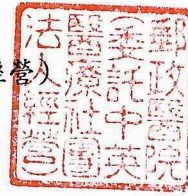 營)
郵政醫院
(委託中英
醫療社團
法人經營)